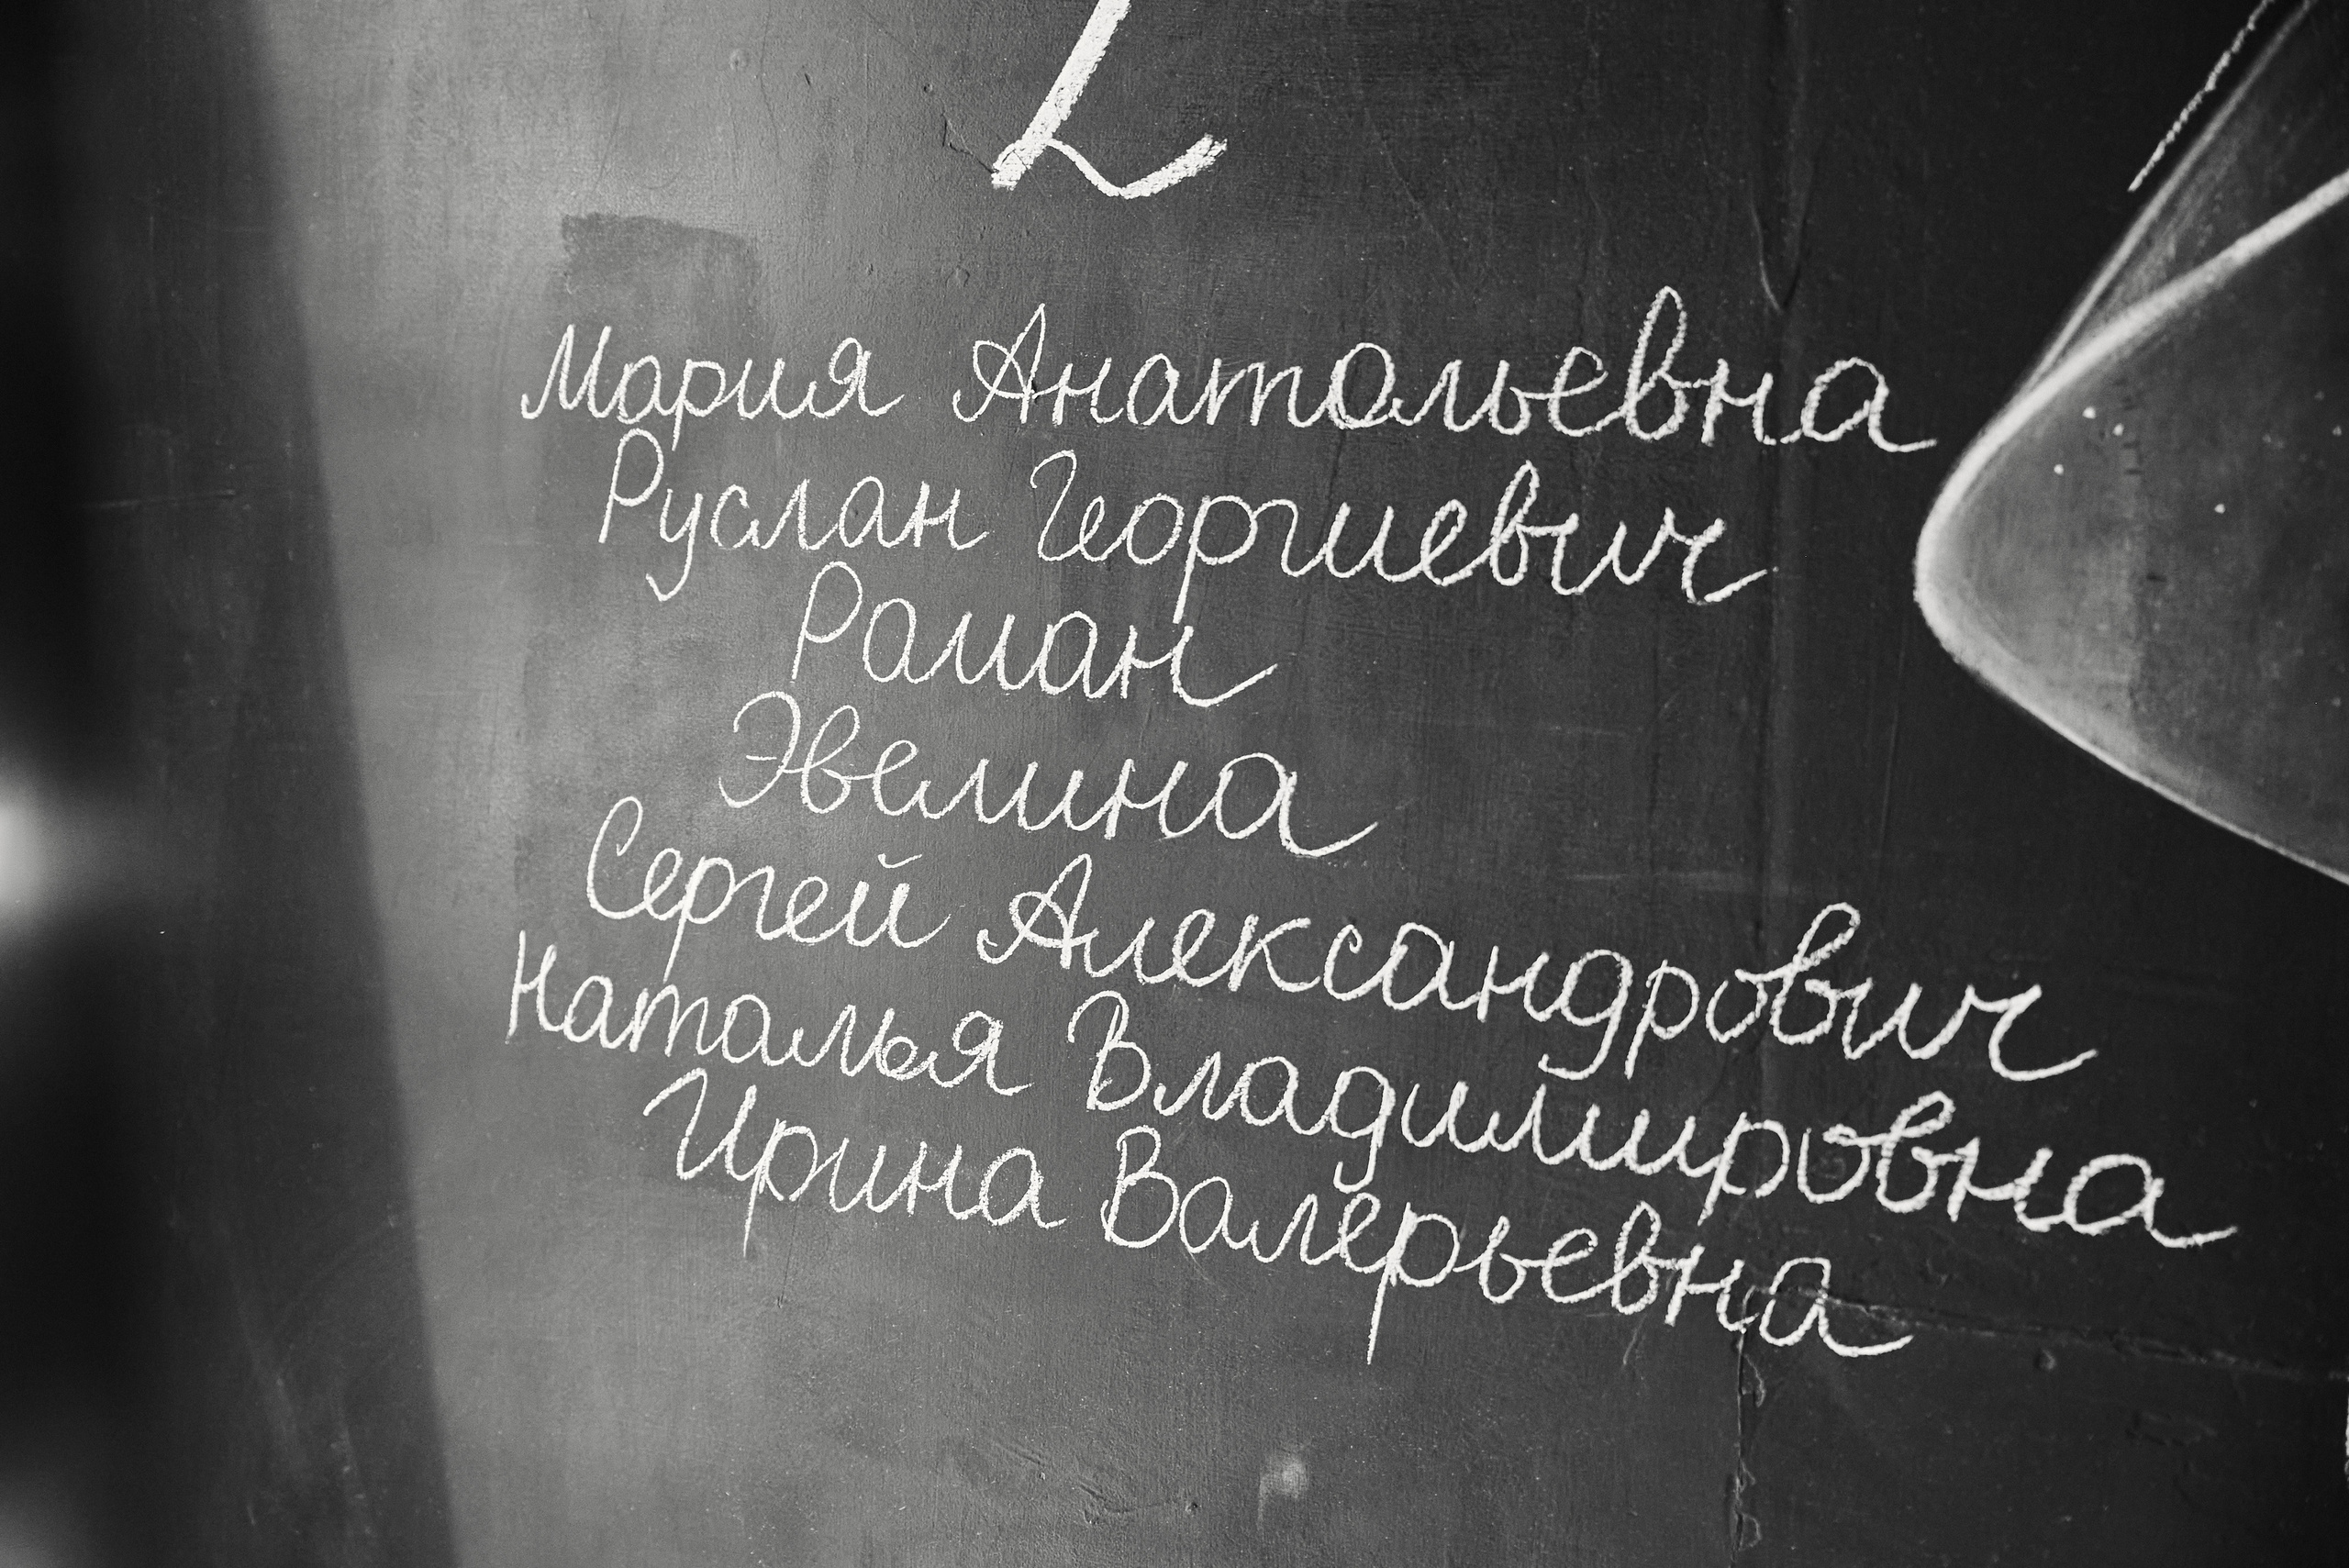 2
Мария Анатольевна
Руслан Георгиевич
Роман
Эвелина
Сергей Александрович
Наталья Владимировна
Ирина Валерьевна